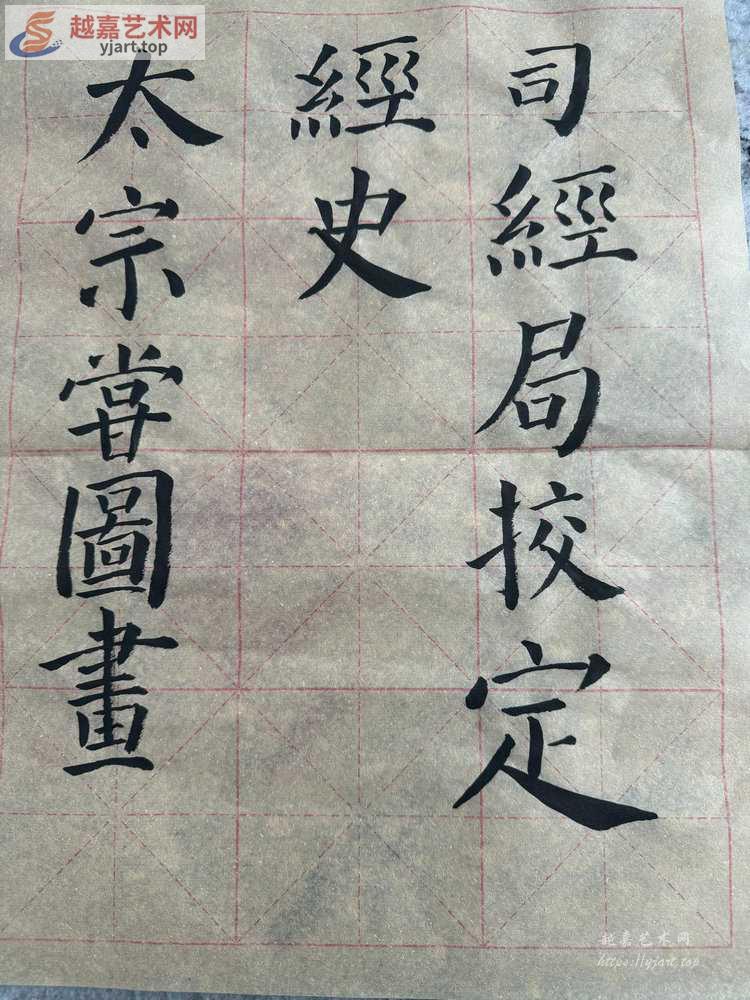 越嘉艺术网
yjart.top
司經局挍定
經史
太宗甞圖畫
越嘉艺术网
https://yjart.top